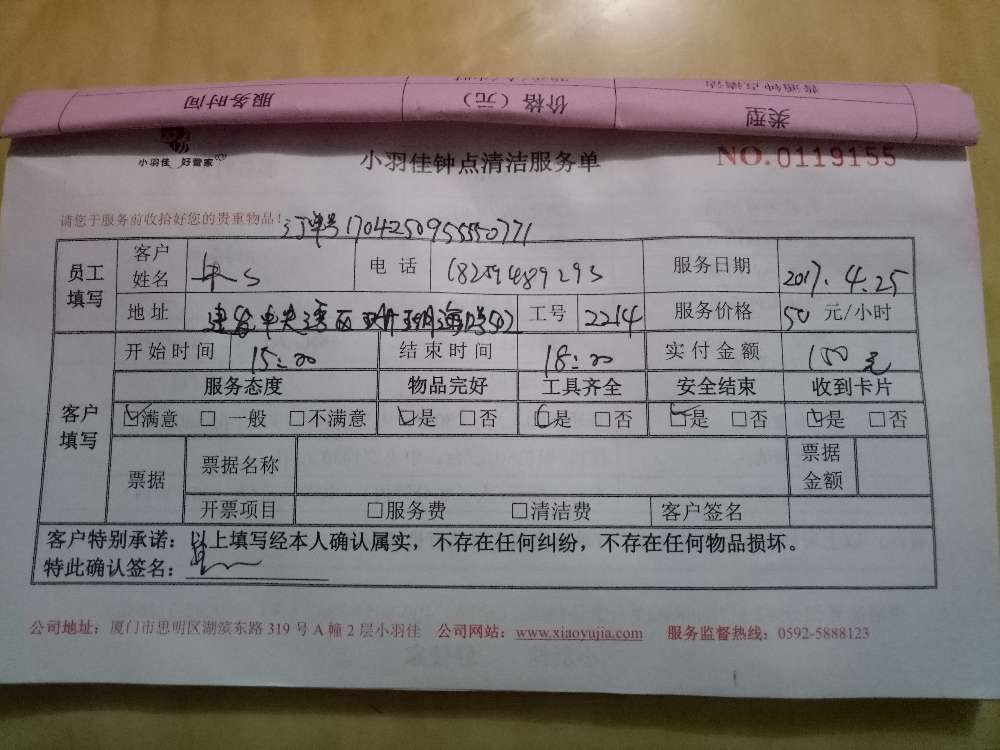 服务时间 价格（元） 类型
小羽佳 好管家
小羽佳钟点清洁服务单 NO.0119155
请您于服务前收拾好您的贵重物品！订单号1704250955550771
员工填写 客户姓名 电话 18259489293 服务日期 2017.4.25
地址 工号 2214 服务价格 50 元/小时
客户填写 开始时间 15:00 结束时间 18:00 实付金额 150元
服务态度 物品完好 工具齐全 安全结束 收到卡片
☑满意 □一般 □不满意 ☑是 □否 ☑是 □否 ☑是 □否 ☑是 □否
票据 票据名称 票据金额
开票项目 □服务费 □清洁费 客户签名
客户特别承诺：以上填写经本人确认属实，不存在任何纠纷，不存在任何物品损坏。
特此确认签名：
公司地址：厦门市思明区湖滨东路 319 号 A 幢 2 层小羽佳 公司网站：www.xiaoyujia.com 服务监督热线：0592-5888123